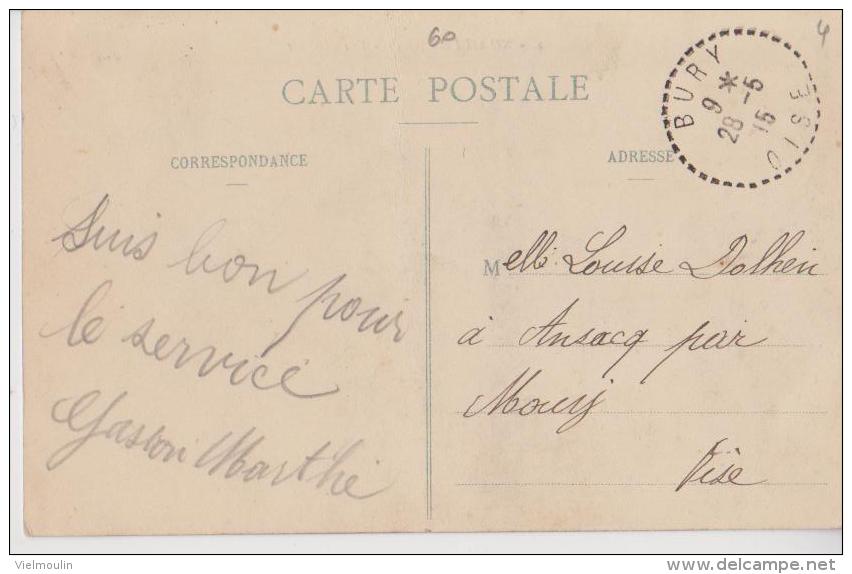 60
4
CARTE POSTALE
BURY * OISE
9
28 -5
16
CORRESPONDANCE
ADRESSE
Suis bon pour
le service
Gaston Marthe
Melle Louise Dolhen
à Ansacq par
Mouy
Oise
Vielmoulin
delcampe.net